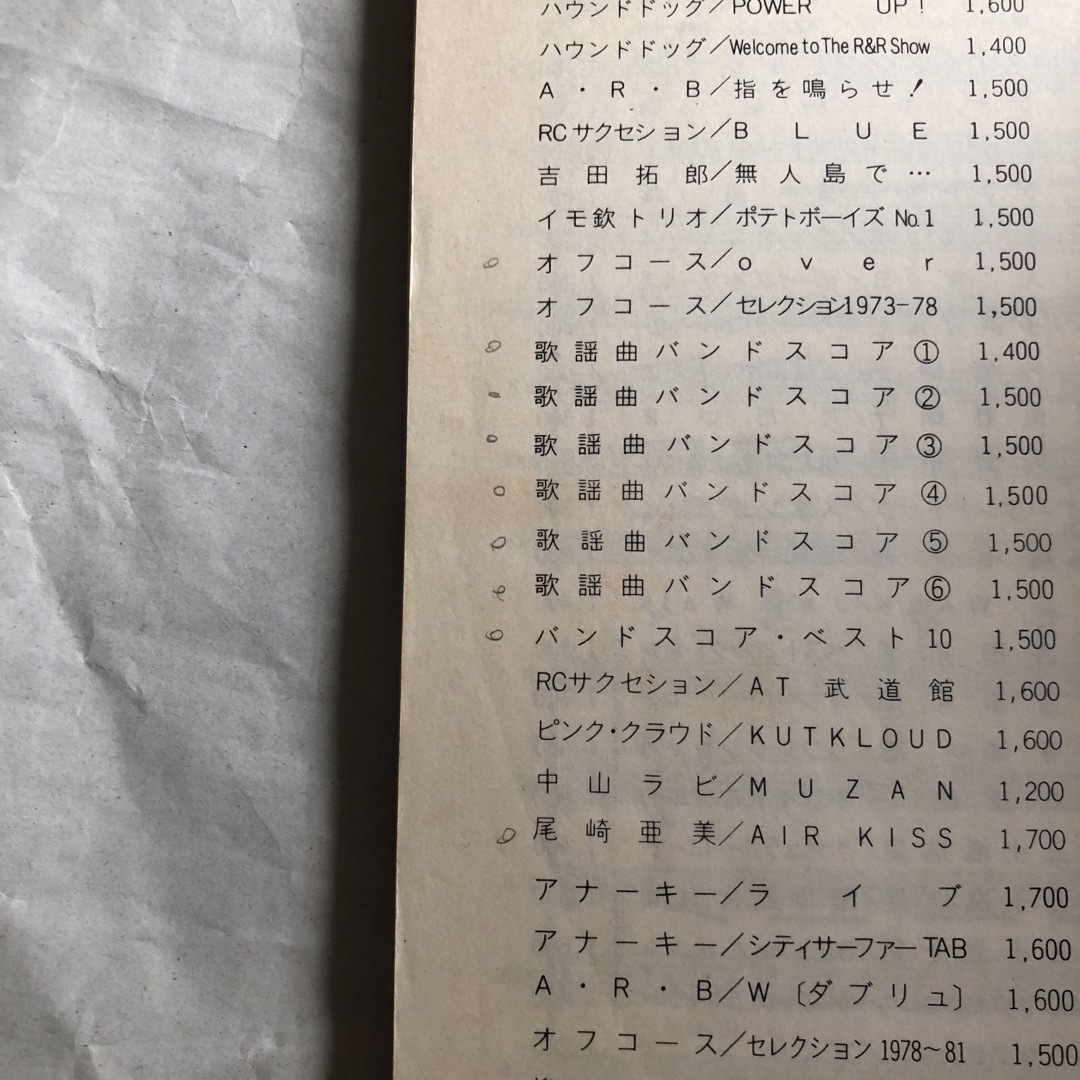 ハウンドドッグ/POWER UP! 1,600
ハウンドドッグ/Welcome to The R&R Show 1,400
A・R・B/指を鳴らせ! 1,500
RCサクセション/BLUE 1,500
吉田拓郎/無人島で… 1,500
イモ欽トリオ/ポテトボーイズ No.1 1,500
オフコース/over 1,500
オフコース/セレクション1973-78 1,500
歌謡曲バンドスコア① 1,400
歌謡曲バンドスコア② 1,500
歌謡曲バンドスコア③ 1,500
歌謡曲バンドスコア④ 1,500
歌謡曲バンドスコア⑤ 1,500
歌謡曲バンドスコア⑥ 1,500
バンドスコア・ベスト10 1,500
RCサクセション/AT 武道館 1,600
ピンク・クラウド/KUTKLOUD 1,600
中山ラビ/MUZAN 1,200
尾崎亜美/AIR KISS 1,700
アナーキー/ライブ 1,700
アナーキー/シティサーファーTAB 1,600
A・R・B/W〔ダブリュ〕 1,600
オフコース/セレクション1978~81 1,500